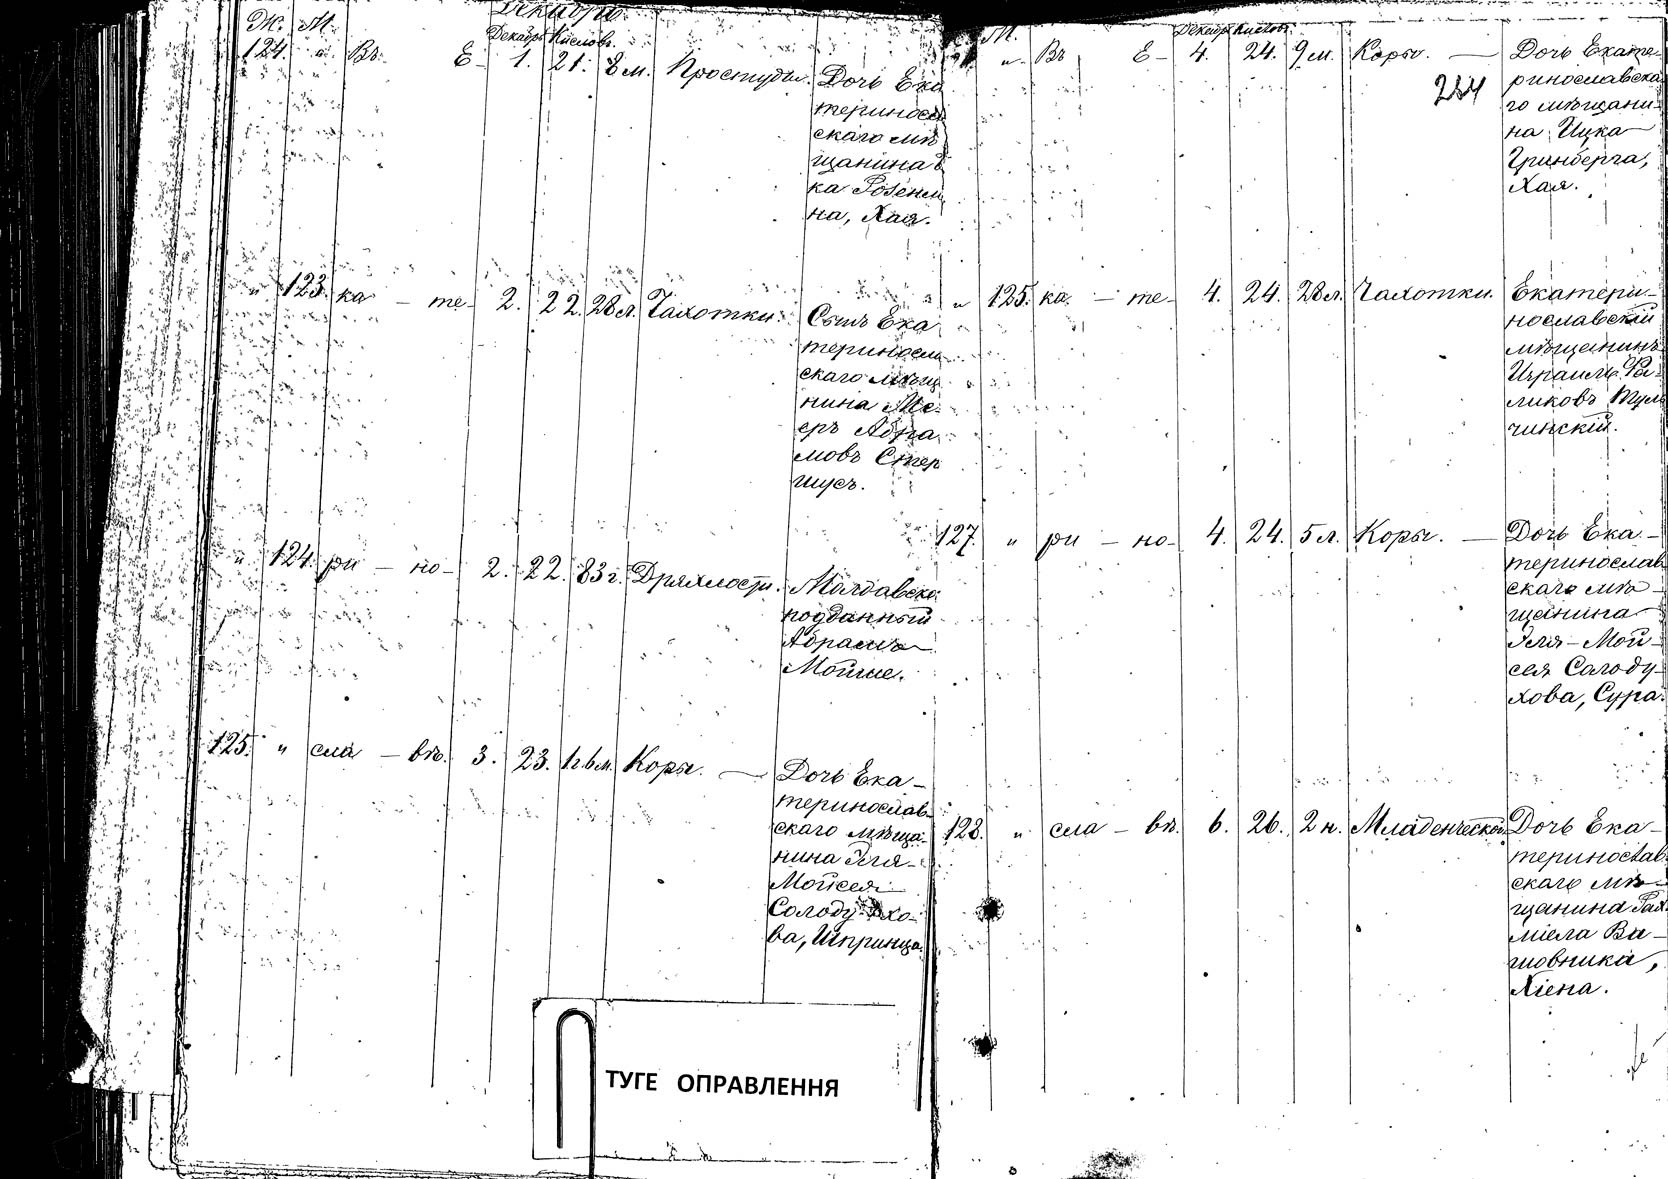 Декабрь
Ж. М. Декабрь Кислов.
124. " Въ Е- 1. 21. 8 м. Простуды. Дочь Ека
теринос
скаго мѣ
щанина
ка Розенм
на, Хая.
" 123. ка - те- 2. 22. 28 л. Чахотки. Сынъ Ека
теринос
скаго мѣщ
нина Ме
еръ Абра
мовъ Стер
шусъ.
" 124. ри - но- 2. 22. 83 г. Дряхлости. Молдавско
подданный
Абрамъ
Мойше.
125. " сла - вѣ. 3. 23. 1 г. 6 м. Коры. — Дочь Ека-
теринослав-
скаго мѣща-
нина Эля-
Мойсея
Солодухо-
ва, Шпринца.
М. Декабрь Кислов.
" Въ Е- 4. 24. 9 м. Коры. — Дочь Екате-
234
ринославска
го мѣщани-
на Ицка
Гринберга,
Хая.
" 125. ка. - те- 4. 24. 28 л. Чахотки. Екатери-
нославскій
мѣщанинъ
Израиль
ликовъ Туль
чинскій.
127. " ри - но- 4. 24. 5 л. Коры. — Дочь Ека-
теринослав
скаго мѣ-
щанина
Эля-Мой-
сея Солоду-
хова, Сура.
128. " сла - вѣ. 6. 26. 2 н. Младенческой Дочь Ека-
теринослав
скаго мѣ-
щанина Рах
міела Ва-
шовника,
Хіена.
ТУГЕ ОПРАВЛЕННЯ